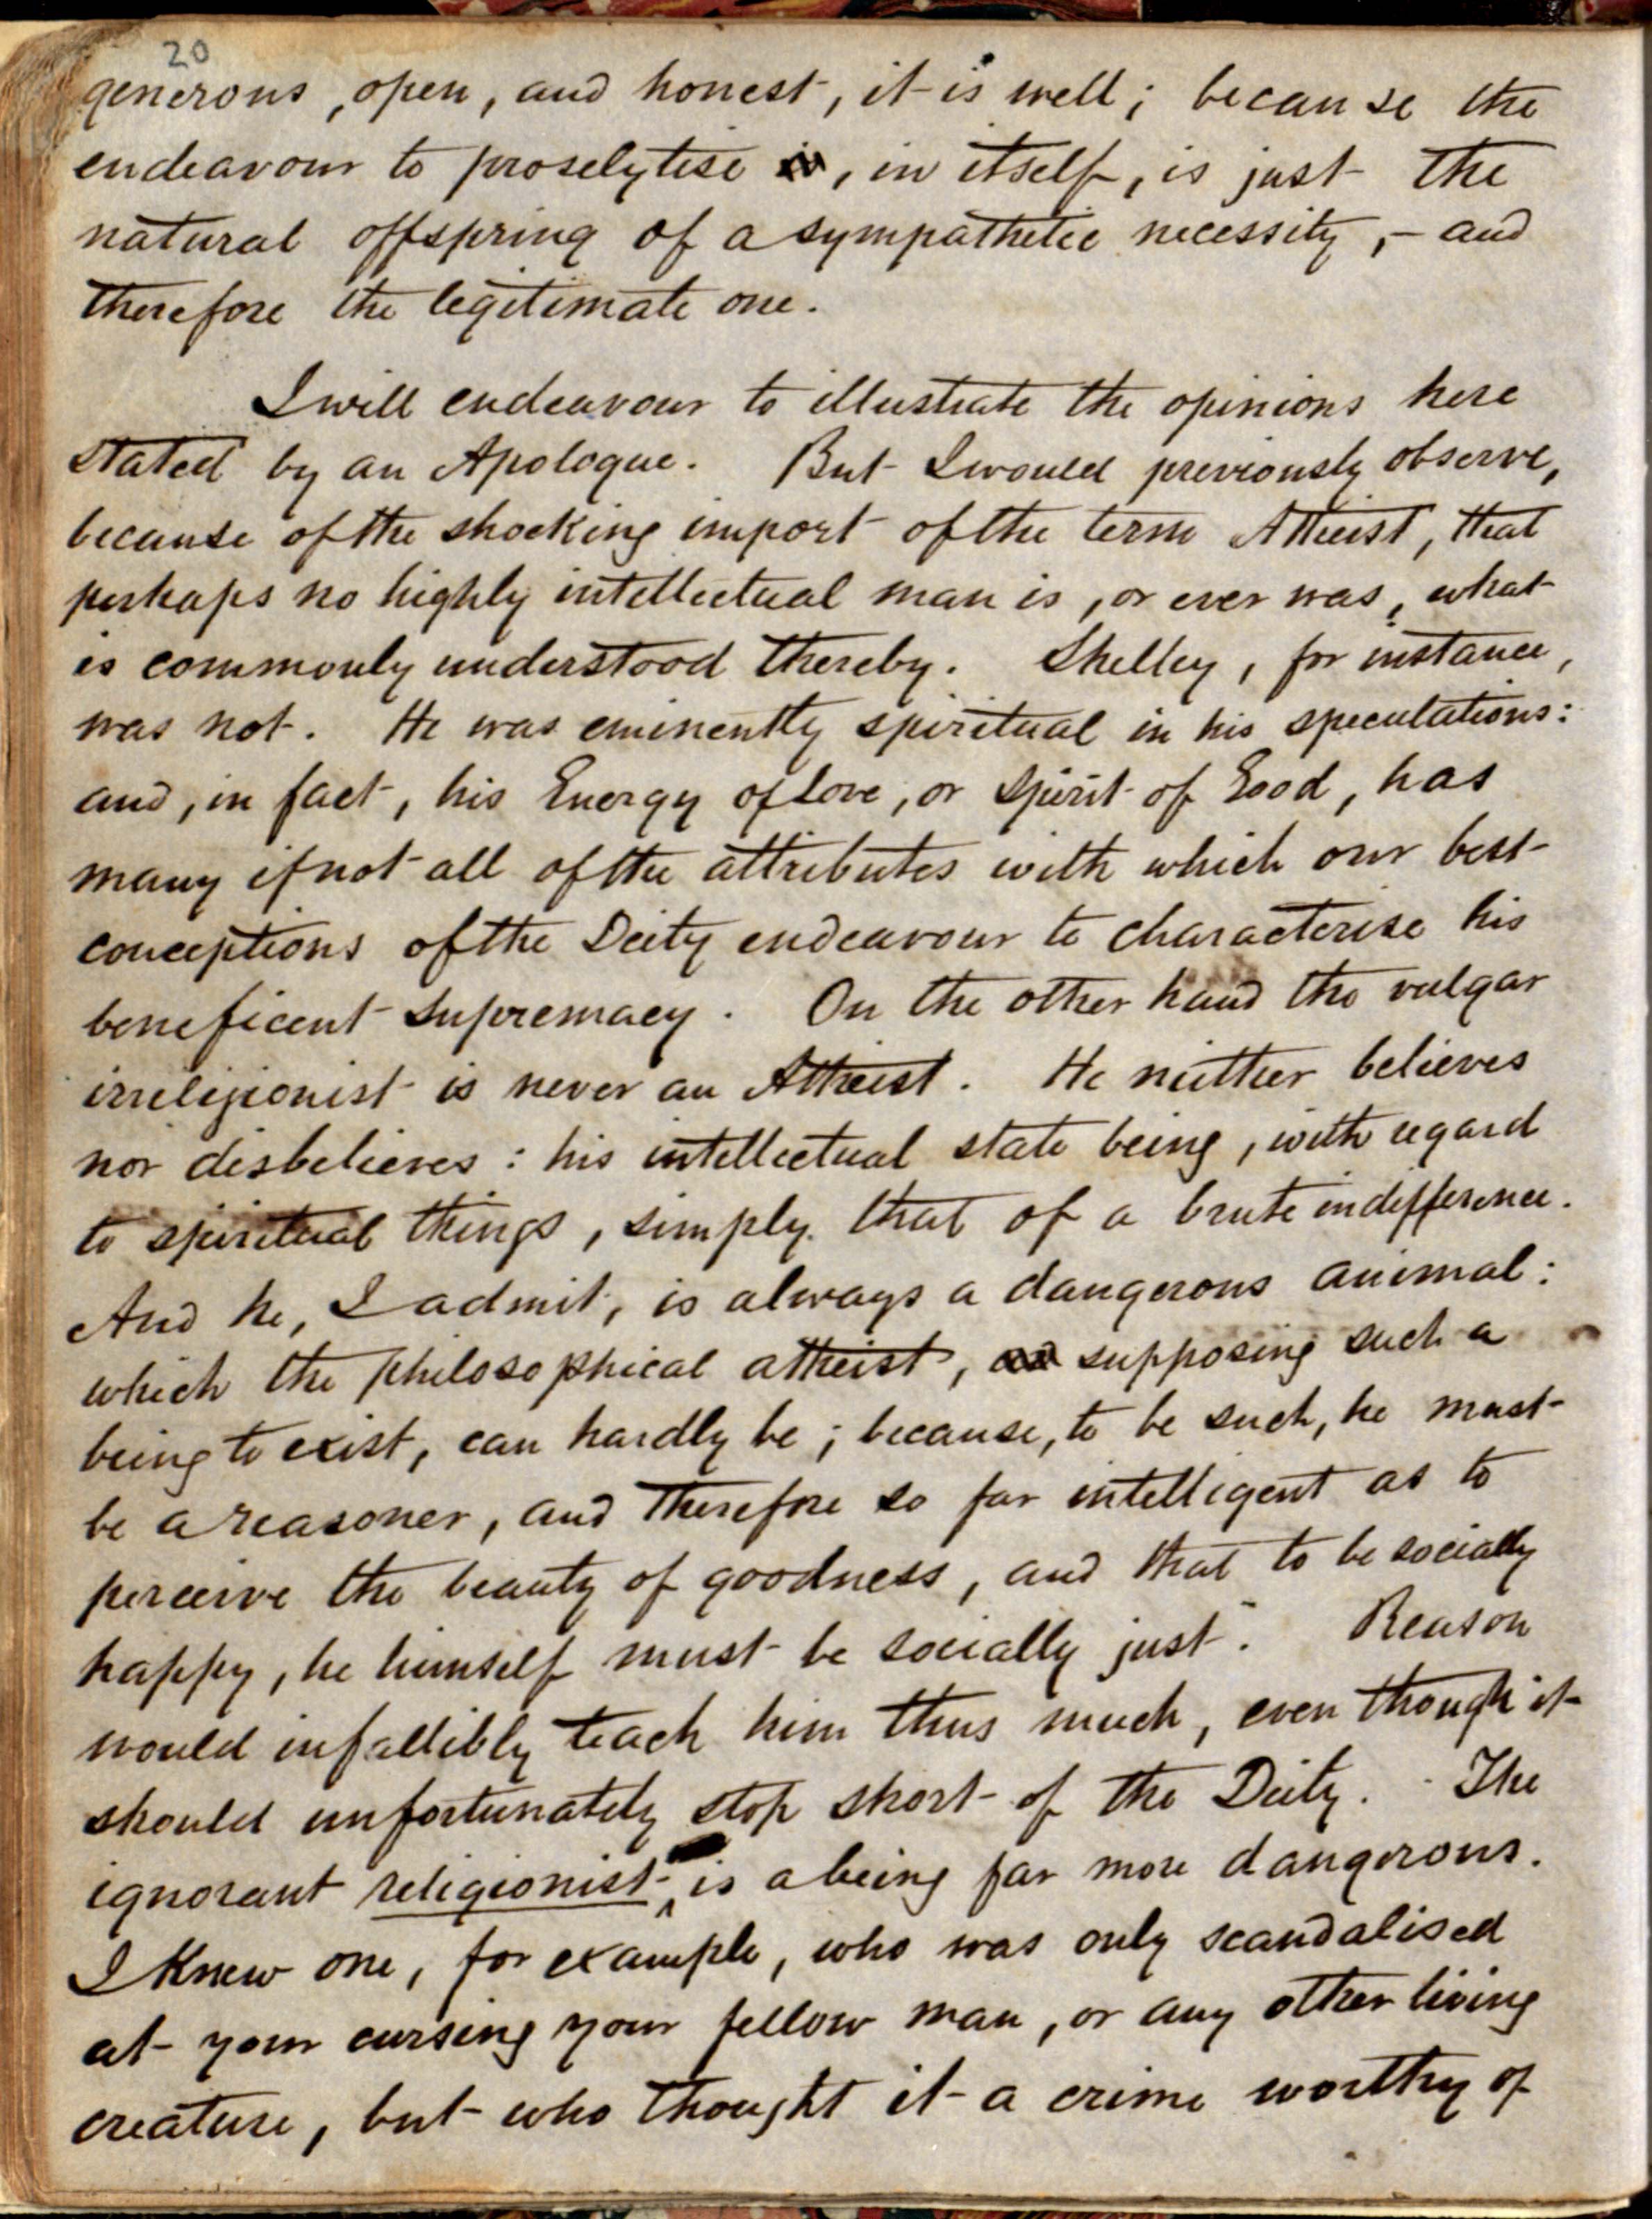 20
generous, open, and honest, it is well; because the
endeavour to proselytise is, in itself, is just the
natural offspring of a sympathetic necessity,- and
therefore the legitimate one.
I will endeavour to illustrate the opinions here
stated by an Apologue. But I would previously observe,
because of the shocking import of the term Atheist, that
perhaps no highly intellectual man is, or ever was, what
is commonly understood thereby. Shelley, for instance,
was not. He was eminently spiritual in his speculations:
and, in fact, his Energy of Love, or Spirit of Good, has
many if not all of the attributes with which our best
conceptions of the Deity endeavour to characterise his
beneficent supremacy. On the other hand the vulgar
irreligionist is never an Atheist. He neither believes
nor disbelieves: his intellectual state being, with regard
to spiritual things, simply that of a brute indifference.
And he, I admit, is always a dangerous animal:
which the philosophical atheist, supposing such a
being to exist, can hardly be; because, to be such, he must
be a reasoner, and therefore so far intelligent as to
perceive the beauty of goodness, and that to be socially
happy, he himself must be socially just. Reason
would infallibly teach him thus much, even though it
should unfortunately stop short of the Deity. The
ignorant religionist is a being far more dangerous.
I knew one, for example, who was only scandalised
at your cursing your fellow man, or any other living
creature, but who thought it a crime worthy of